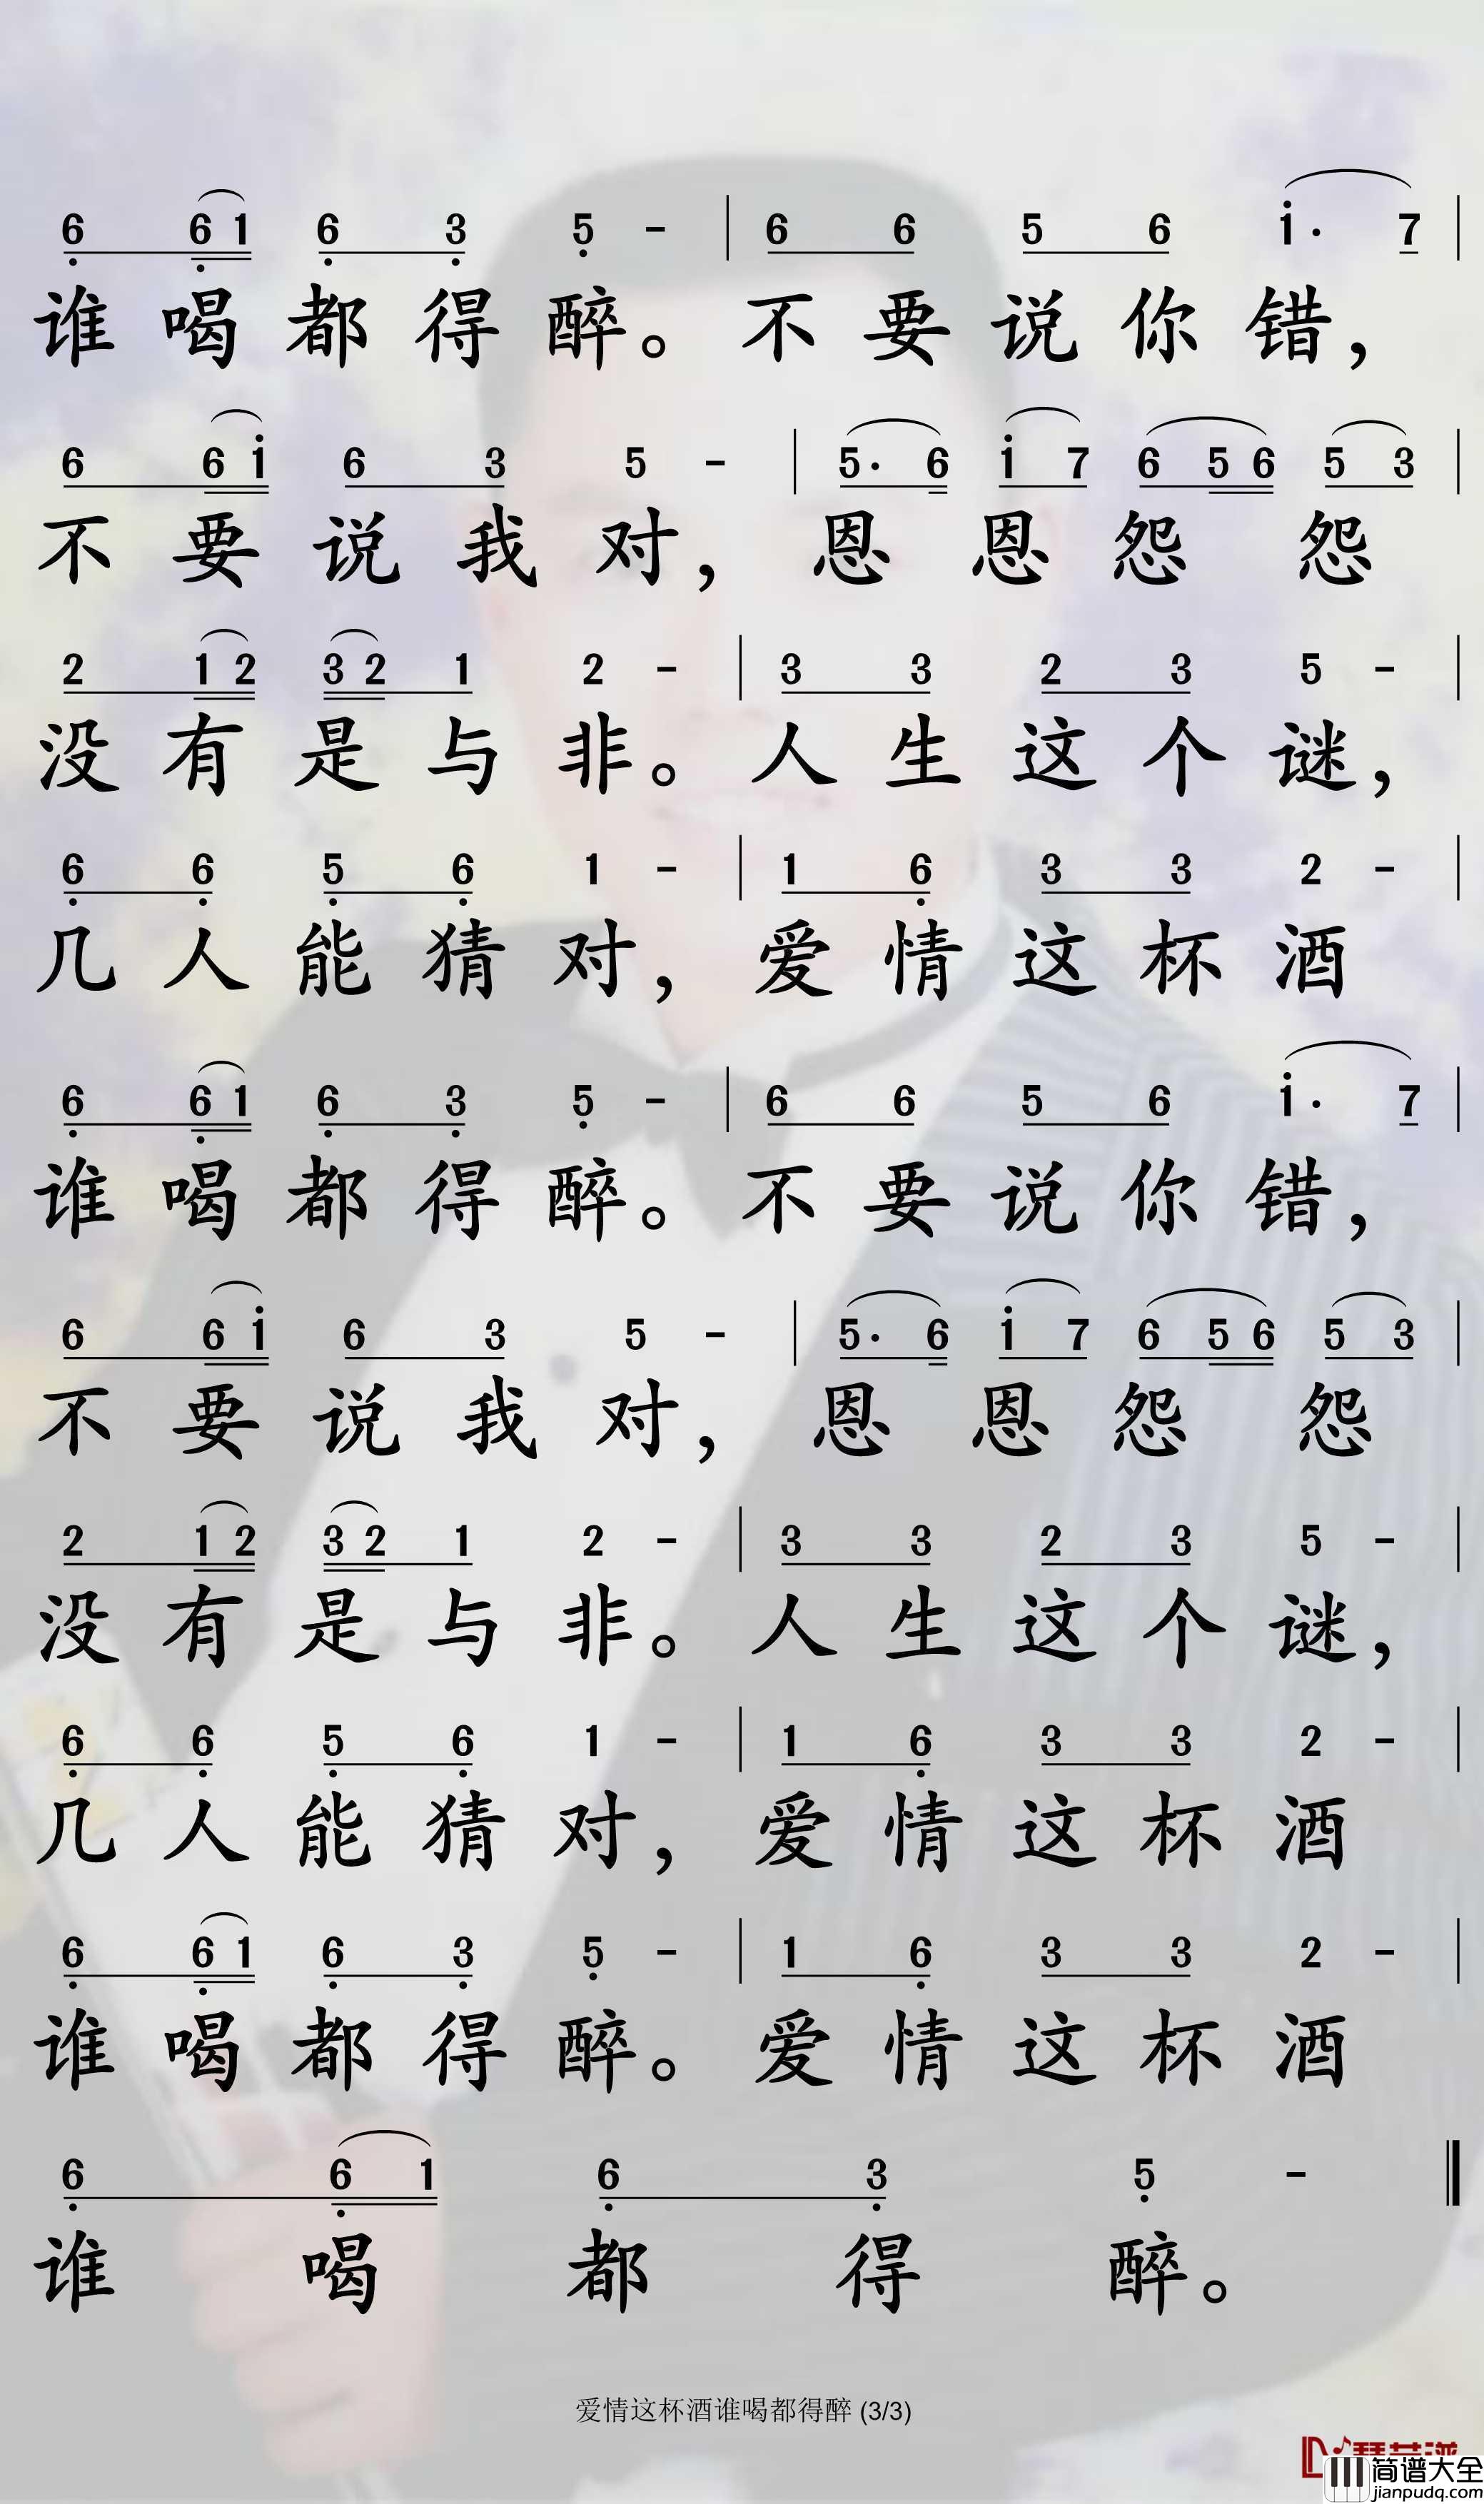 6 6 1 6 3 5 - | 6 6 5 6 i· 7 |
谁喝都得醉。不要说你错，
6 6 i 6 3 5 - | 5· 6 i 7 6 5 6 5 3 |
不要说我对，恩恩怨怨
2 1 2 3 2 1 2 - | 3 3 2 3 5 - |
没有是与非。人生这个谜，
6 6 5 6 1 - | 1 6 3 3 2 - |
几人能猜对，爱情这杯酒
6 6 1 6 3 5 - | 6 6 5 6 i· 7 |
谁喝都得醉。不要说你错，
6 6 i 6 3 5 - | 5· 6 i 7 6 5 6 5 3 |
不要说我对，恩恩怨怨
2 1 2 3 2 1 2 - | 3 3 2 3 5 - |
没有是与非。人生这个谜，
6 6 5 6 1 - | 1 6 3 3 2 - |
几人能猜对，爱情这杯酒
6 6 1 6 3 5 - | 1 6 3 3 2 - |
谁喝都得醉。爱情这杯酒
6 6 1 6 3 5 - ‖
谁喝都得醉。
爱情这杯酒谁喝都得醉 (3/3)
简谱大全
jianpudq.com